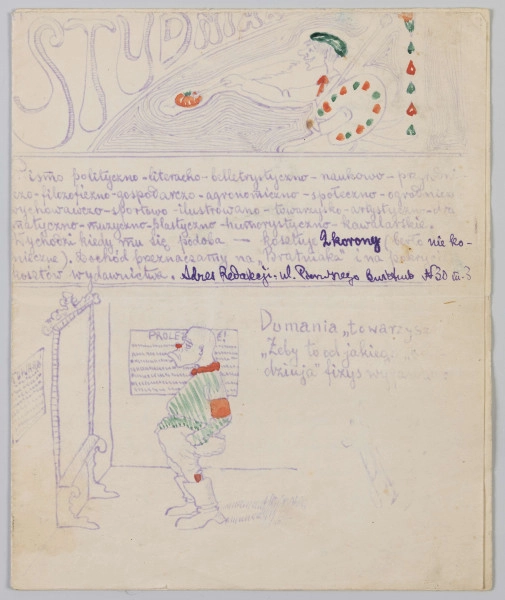 STUDNIA
Pismo polityczno-literacko-belletrystyczno-naukowo-
czo-filozoficzno-gospodarczo-agronomiczno-społeczno-ogrodniczo
wychowawczo-sportowo-ilustrowano-towarzysko-artystyczno-
matyczno-muzyczno-plastyczno-humorystyczno-kawalarskie.
Wychodzi kiedy mu się podoba — kosztuje 2 korony (było nie ko-
nieczne). Dochód przeznaczamy na „Bratniaka" i na pokrycie
kosztów wydawnictwa. Adres Redakcji: ul. No 30 m. 3
PROLE E!
Dumania „towarzysza
„Żeby to od jakiego
dzieja" fizys